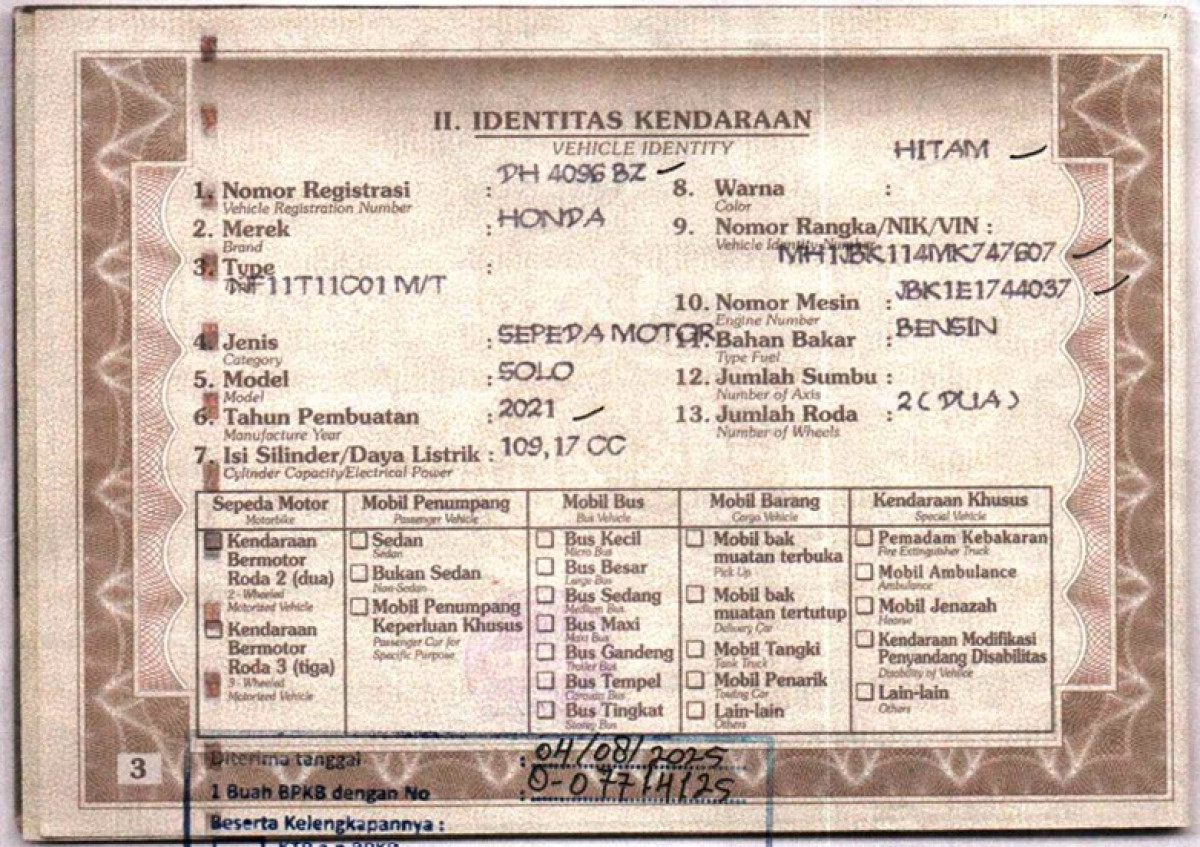 II. IDENTITAS KENDARAAN
VEHICLE IDENTITY
1. Nomor Registrasi : DH 4096 BZ
Vehicle Registration Number
2. Merek : HONDA
Brand
3. Type :
NF11T11C01 M/T
4. Jenis : SEPEDA MOTOR
Category
5. Model : SOLO
Model
6. Tahun Pembuatan : 2021
Manufacture Year
7. Isi Silinder/Daya Listrik : 109,17 CC
Cylinder Capacity/Electrical Power
8. Warna : HITAM
Color
9. Nomor Rangka/NIK/VIN :
Vehicle Identity Number
MH1JBK114MK747607
10. Nomor Mesin : JBK1E1744037
Engine Number
11. Bahan Bakar : BENSIN
Type Fuel
12. Jumlah Sumbu :
Number of Axis
13. Jumlah Roda : 2 ( DUA )
Number of Wheels
Sepeda Motor
Motorbike
Kendaraan
Bermotor
Roda 2 (dua)
2 - Wheeled
Motorized Vehicle
Kendaraan
Bermotor
Roda 3 (tiga)
3 - Wheeled
Motorized Vehicle
Mobil Penumpang
Passenger Vehicle
Sedan
Sedan
Bukan Sedan
Non-Sedan
Mobil Penumpang
Keperluan Khusus
Passenger Car for
Specific Purpose
Mobil Bus
Bus Vehicle
Bus Kecil
Micro Bus
Bus Besar
Large Bus
Bus Sedang
Medium Bus
Bus Maxi
Maxi Bus
Bus Gandeng
Trailer Bus
Bus Tempel
Bus Tingkat
Mobil Barang
Cargo Vehicle
Mobil bak
muatan terbuka
Pick Up
Mobil bak
muatan tertutup
Delivery Car
Mobil Tangki
Tank Truck
Mobil Penarik
Towing Car
Lain-lain
Others
Kendaraan Khusus
Special Vehicle
Pemadam Kebakaran
Fire Extinguisher Truck
Mobil Ambulance
Ambulance
Mobil Jenazah
Hearse
Kendaraan Modifikasi
Penyandang Disabilitas
Disability of Vehilce
Lain-lain
Others
3
Diterima tanggal : 04/08/2025
1 Buah BPKB dengan No : 0-07714125
Beserta Kelengkapannya :